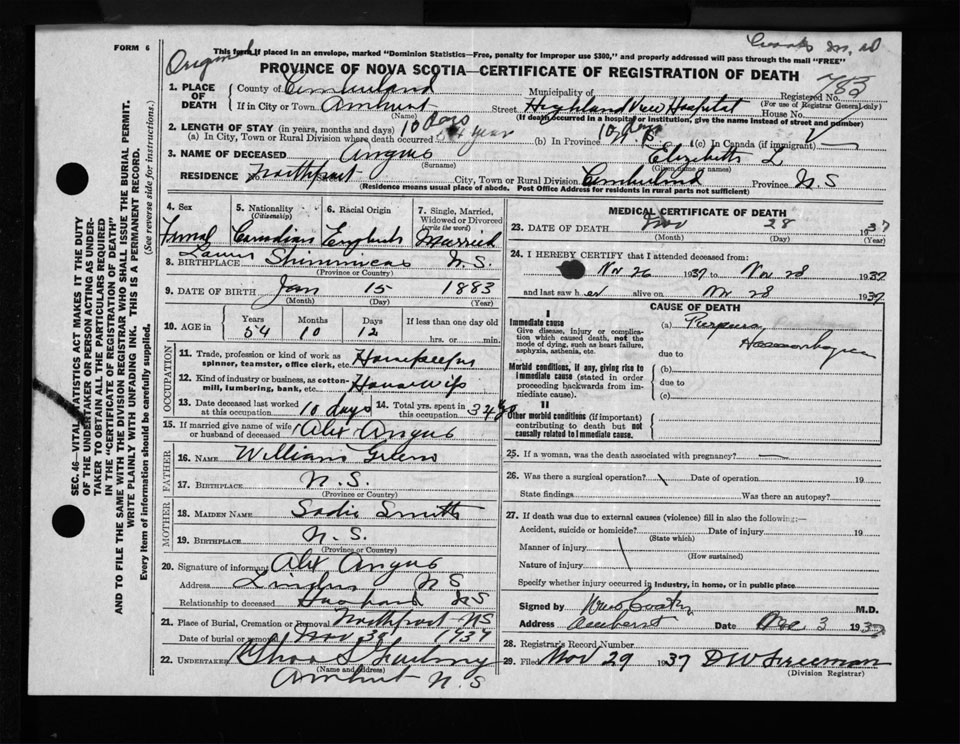 FORM 6
Original
This form if placed in an envelope, marked "Dominion Statistics—Free, penalty for improper use $300," and properly addressed will pass through the mail "FREE"
PROVINCE OF NOVA SCOTIA—CERTIFICATE OF REGISTRATION OF DEATH
783
1. PLACE OF DEATH
County of Cumberland Municipality of Registered No.
(For use of Registrar General only)
If in City or Town Amherst Street Highland View Hospital House No.
(Name) (If death occurred in a hospital or institution, give the name instead of street and number)
2. LENGTH OF STAY (in years, months and days) 10 days 10 days
(a) In City, Town or Rural Division where death occurred (b) In Province (c) In Canada (if immigrant)
3. NAME OF DECEASED Angus Elizabeth L
(Surname) (Given name or names)
RESIDENCE No. Northport City, Town or Rural Division Cumberland Province N.S
(Residence means usual place of abode. Post Office Address for residents in rural parts not sufficient)
4. Sex 5. Nationality (Citizenship) 6. Racial Origin 7. Single, Married, Widowed or Divorced (write the word)
Femal Canadian English Married
8. BIRTHPLACE Shinimicas N.S.
(Province or Country)
9. DATE OF BIRTH Jan 15 1883
(Month) (Day) (Year)
10. AGE in Years Months Days If less than one day old
54 10 12 hrs. or min.
OCCUPATION
11. Trade, profession or kind of work as spinner, teamster, office clerk, etc.
12. Kind of industry or business, as cotton-mill, lumbering, bank, etc. Housewife
13. Date deceased last worked at this occupation 10 days 14. Total yrs. spent in this occupation 34
15. If married give name of wife or husband of deceased Alex Angus
FATHER
16. NAME William
17. BIRTHPLACE N.S.
(Province or Country)
MOTHER
18. MAIDEN NAME Sadie Smith
19. BIRTHPLACE N.S.
(Province or Country)
20. Signature of informant Alex Angus
Address Linden N S
Relationship to deceased Husband NS
21. Place of Burial, Cremation or Removal Northport NS
Date of burial or removal Nov 30 1937
22. UNDERTAKER
(Name and address)
Amherst N.S
MEDICAL CERTIFICATE OF DEATH
23. DATE OF DEATH Nov 28 1937
(Month) (Day) (Year)
24. I HEREBY CERTIFY that I attended deceased from:
Nov 26 1937 to Nov 28 1937
and last saw her alive on Nov 28 1937
CAUSE OF DEATH
I
Immediate cause
Give disease, injury or complication which caused death, not the mode of dying, such as heart failure, asphyxia, asthenia, etc.
(a) Purpura Haemorrhagica
due to
Morbid conditions, if any, giving rise to immediate cause (stated in order proceeding backwards from immediate cause).
(b)
due to
(c)
II
Other morbid conditions (if important) contributing to death but not causally related to immediate cause.
25. If a woman, was the death associated with pregnancy? —
26. Was there a surgical operation? Date of operation 19
State findings Was there an autopsy?
27. If death was due to external causes (violence) fill in also the following:—
Accident, suicide or homicide? Date of injury 19
(State which)
Manner of injury
(How sustained)
Nature of injury
Specify whether injury occurred in industry, in home, or in public place
Signed by M.D.
Address Amherst Date Dec. 3 1937
28. Registrar's Record Number
29. Filed Nov 29 1937 D W Freeman
(Division Registrar)
SEC. 46—VITAL STATISTICS ACT MAKES IT THE DUTY
OF THE UNDERTAKER OR PERSON ACTING AS UNDER-
TAKER TO OBTAIN ALL THE PARTICULARS REQUIRED
IN THE "CERTIFICATE OF REGISTRATION OF DEATH"
AND TO FILE THE SAME WITH THE DIVISION REGISTRAR WHO SHALL ISSUE THE BURIAL PERMIT.
WRITE PLAINLY WITH UNFADING INK. THIS IS A PERMANENT RECORD.
Every item of information should be carefully supplied. (See reverse side for instructions.)